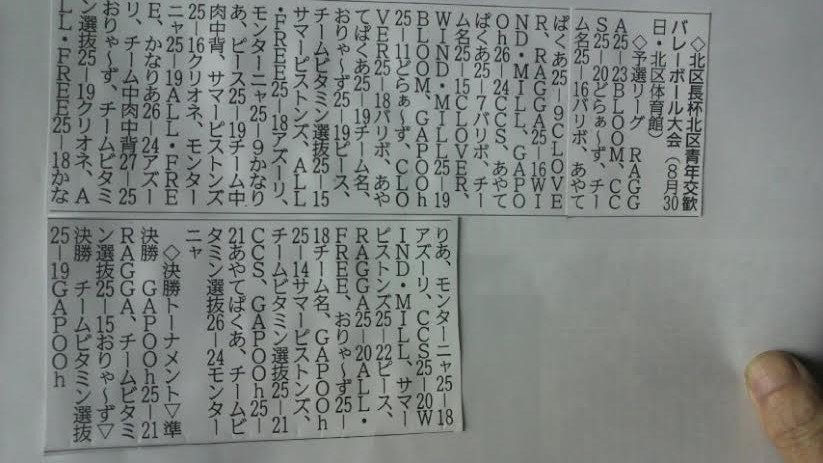 ◇北区長杯北区青年交歓
バレーボール大会（8月30
日・北区体育館）
◇予選リーグ　RAGG
A25―23BLOOM、CC
S25―20どらぁ～ず、チー
ム名25―16バリボ、あやて
ぱくあ25―9CLOVE
R、RAGGA25―16WI
ND・MILL、GAPO
Oh26―24CCS、あやて
ぱくあ25―7バリボ、チー
ム名25―15CLOVER、
WIND・MILL25―19
BLOOM、GAPOOh
25―11どらぁ～ず、CLO
VER25―18バリボ、あや
てぱくあ25―19チーム名、
おりゃ～ず25―19ピース、
チームビタミン選抜25―15
サマーピストンズ、ALL
・FREE25―18アズーリ、
モンターニャ25―9かなり
あ、ピース25―19チーム中
肉中背、サマーピストンズ
25―16クリオネ、モンター
ニャ25―19ALL・FRE
E、かなりあ26―24アズー
リ、チーム中肉中背27―25
おりゃ～ず、チームビタミ
ン選抜25―19クリオネ、A
LL・FREE25―18かな
りあ、モンターニャ25―18
アズーリ、CCS25―20W
IND・MILL、サマー
ピストンズ25―22ピース、
RAGGA25―20ALL・
FREE、おりゃ～ず25―
18チーム名、GAPOOh
25―14サマーピストンズ、
チームビタミン選抜25―21
CCS、GAPOOh25―
21あやてぱくあ、チームビ
タミン選抜26―24モンター
ニャ
◇決勝トーナメント▽準
決勝　GAPOOh25―21
RAGGA、チームビタミ
ン選抜25―15おりゃ～ず▽
決勝　チームビタミン選抜
25―19GAPOOh